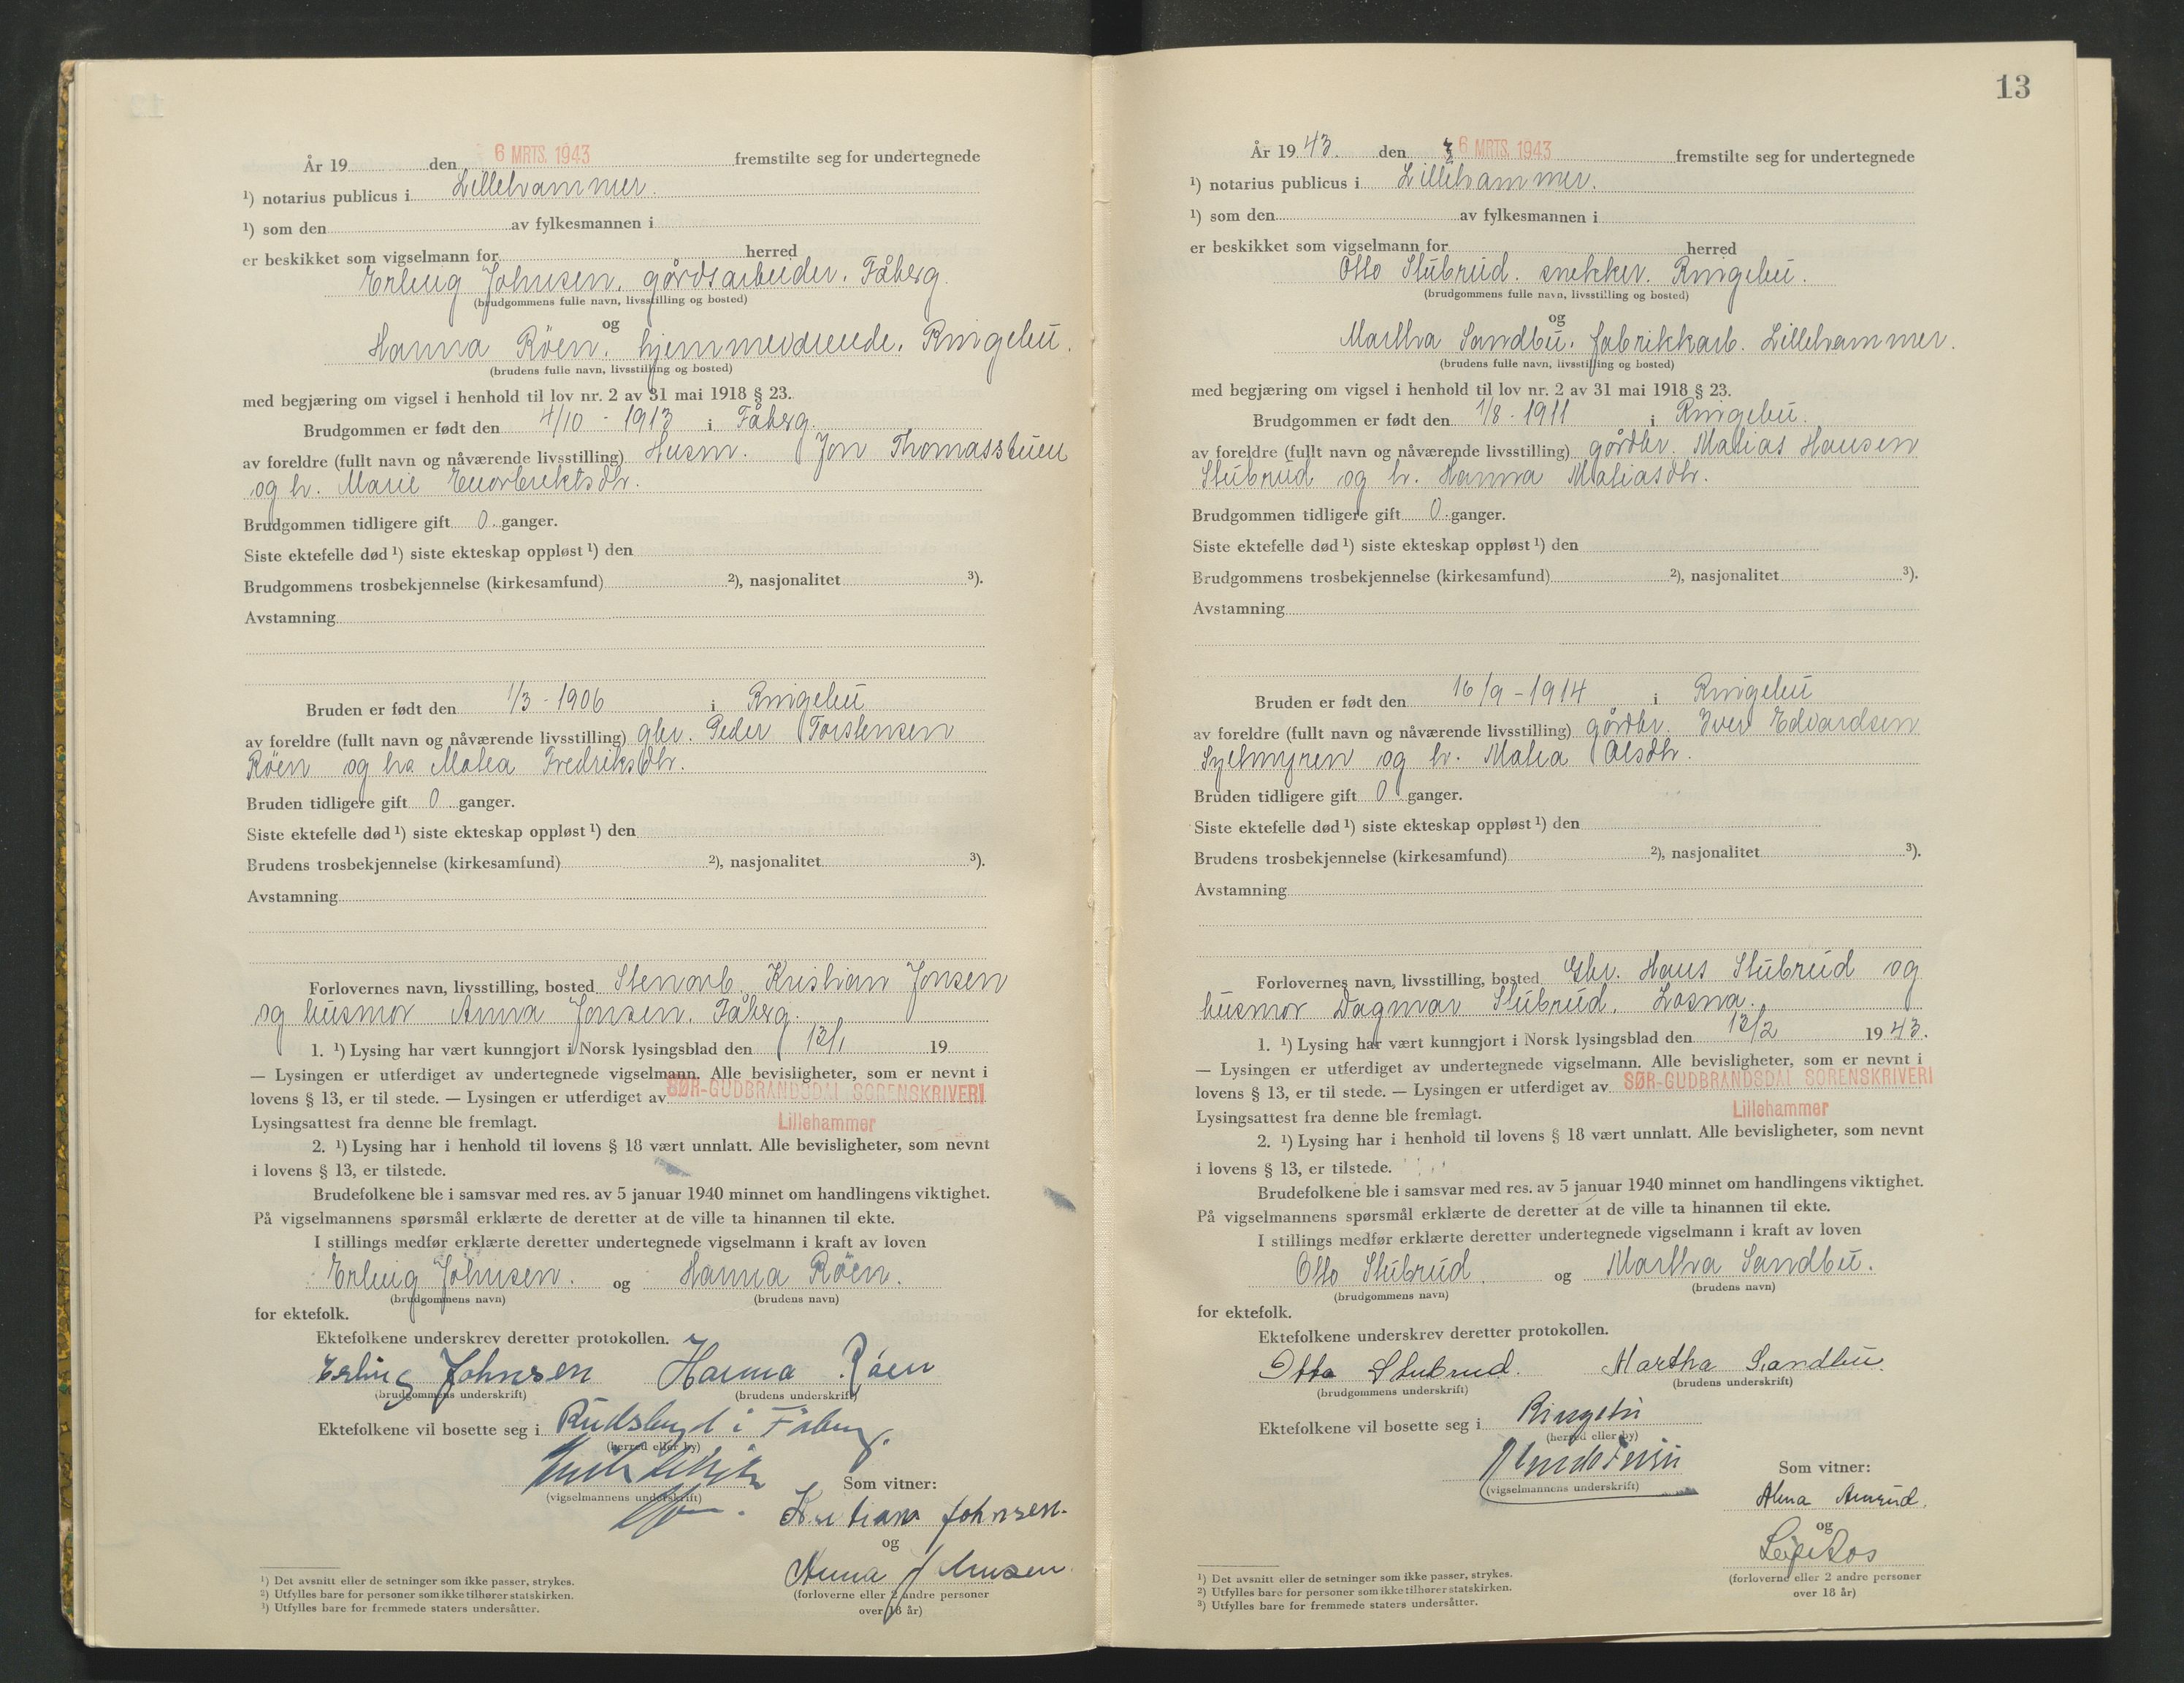 År 19 den 6 MRTS. 1943 fremstilte seg for undertegnede
¹) notarius publicus i Lillehammer.
¹) som den av fylkesmannen i
er beskikket som vigselmann for herred
Erling Johnsen. gårdsarbeider. Fåberg.
(brudgommens fulle navn, livsstilling og bosted)
og
Hanna Röen. hjemmeværende. Ringebu.
(brudens fulle navn, livsstilling og bosted)
med begjæring om vigsel i henhold til lov nr. 2 av 31 mai 1918 § 23.
Brudgommen er født den 4/10 - 1913 i Fåberg.
av foreldre (fullt navn og nåværende livsstilling) Husm. Jon Thomasstuen
og h. Marie Engebriktsdtr.
Brudgommen tidligere gift 0 ganger.
Siste ektefelle død ¹) siste ekteskap oppløst ¹) den
Brudgommens trosbekjennelse (kirkesamfund) ²), nasjonalitet ³).
Avstamning
Bruden er født den 1/3 - 1906 i Ringebu
av foreldre (fullt navn og nåværende livsstilling) gbr. Peder Torstensen
Röen og h. Matea Fredriksdtr.
Bruden tidligere gift 0 ganger.
Siste ektefelle død ¹) siste ekteskap oppløst ¹) den
Brudens trosbekjennelse (kirkesamfund) ²), nasjonalitet ³).
Avstamning
Forlovernes navn, livsstilling, bosted Stenarb. Kristian Jonsen
og husmor Anna Jonsen. Fåberg.
1. ¹) Lysing har vært kunngjort i Norsk lysingsblad den 13/1 19
— Lysingen er utferdiget av undertegnede vigselmann. Alle bevisligheter, som er nevnt i
lovens § 13, er til stede. — Lysingen er utferdiget av SØR-GUDBRANDSDAL SORENSKRIVERI
Lysingsattest fra denne ble fremlagt. Lillehammer
2. ¹) Lysing har i henhold til lovens § 18 vært unnlatt. Alle bevisligheter, som nevnt
i lovens § 13, er tilstede.
Brudefolkene ble i samsvar med res. av 5 januar 1940 minnet om handlingens viktighet.
På vigselmannens spørsmål erklærte de deretter at de ville ta hinannen til ekte.
I stillings medfør erklærte deretter undertegnede vigselmann i kraft av loven
Erling Johnsen. og Hanna Röen.
(brudgommens navn) (brudens navn)
for ektefolk.
Ektefolkene underskrev deretter protokollen.
Erling Johnsen Hanna Röen
(brudgommens underskrift) (brudens underskrift)
Ektefolkene vil bosette seg i Rudsbygd i Fåberg.
(herred eller by)
Som vitner:
(vigselmannens underskrift)
Kristian Johnsen.
og
Anna Johnsen.
(forloverne eller 2 andre personer
over 18 år)
¹) Det avsnitt eller de setninger som ikke passer, strykes.
²) Utfylles bare for personer som ikke tilhører statskirken.
³) Utfylles bare for fremmede staters undersåtter.
13
År 19 43. den 6 MRTS. 1943 fremstilte seg for undertegnede
¹) notarius publicus i Lillehammer.
¹) som den av fylkesmannen i
er beskikket som vigselmann for herred
Otto Stubrud. snekker. Ringebu.
(brudgommens fulle navn, livsstilling og bosted)
og
Martha Sandbu. fabrikkarb. Lillehammer.
(brudens fulle navn, livsstilling og bosted)
med begjæring om vigsel i henhold til lov nr. 2 av 31 mai 1918 § 23.
Brudgommen er født den 1/8 - 1911 i Ringebu.
av foreldre (fullt navn og nåværende livsstilling) gårdbr. Matias Hansen
Stubrud og h. Hanna Matiasdtr.
Brudgommen tidligere gift 0 ganger.
Siste ektefelle død ¹) siste ekteskap oppløst ¹) den
Brudgommens trosbekjennelse (kirkesamfund) ²), nasjonalitet ³).
Avstamning
Bruden er født den 16/9 - 1914 i Ringebu
av foreldre (fullt navn og nåværende livsstilling) gårdbr. Iver Edvardsen
og h. Matea Olsdtr.
Bruden tidligere gift 0 ganger.
Siste ektefelle død ¹) siste ekteskap oppløst ¹) den
Brudens trosbekjennelse (kirkesamfund) ²), nasjonalitet ³).
Avstamning
Forlovernes navn, livsstilling, bosted Gbr. Hans Stubrud og
husmor Dagmar Stubrud. Losna.
1. ¹) Lysing har vært kunngjort i Norsk lysingsblad den 13/2 19 43.
— Lysingen er utferdiget av undertegnede vigselmann. Alle bevisligheter, som er nevnt i
lovens § 13, er til stede. — Lysingen er utferdiget av SØR-GUDBRANDSDAL SORENSKRIVERI
Lysingsattest fra denne ble fremlagt. Lillehammer
2. ¹) Lysing har i henhold til lovens § 18 vært unnlatt. Alle bevisligheter, som nevnt
i lovens § 13, er tilstede.
Brudefolkene ble i samsvar med res. av 5 januar 1940 minnet om handlingens viktighet.
På vigselmannens spørsmål erklærte de deretter at de ville ta hinannen til ekte.
I stillings medfør erklærte deretter undertegnede vigselmann i kraft av loven
Otto Stubrud. og Martha Sandbu.
(brudgommens navn) (brudens navn)
for ektefolk.
Ektefolkene underskrev deretter protokollen.
Otto Stubrud. Martha Sandbu.
(brudgommens underskrift) (brudens underskrift)
Ektefolkene vil bosette seg i Ringebu
(herred eller by)
Som vitner:
(vigselmannens underskrift)
Alma Amrud.
og
Leif Aos
(forloverne eller 2 andre personer
over 18 år)
¹) Det avsnitt eller de setninger som ikke passer, strykes.
²) Utfylles bare for personer som ikke tilhører statskirken.
³) Utfylles bare for fremmede staters undersåtter.